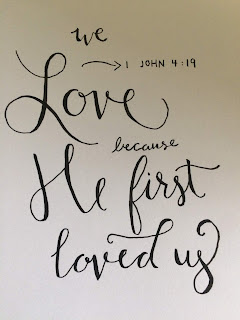 we
→ 1 JOHN 4:19
Love
because
He first
loved us